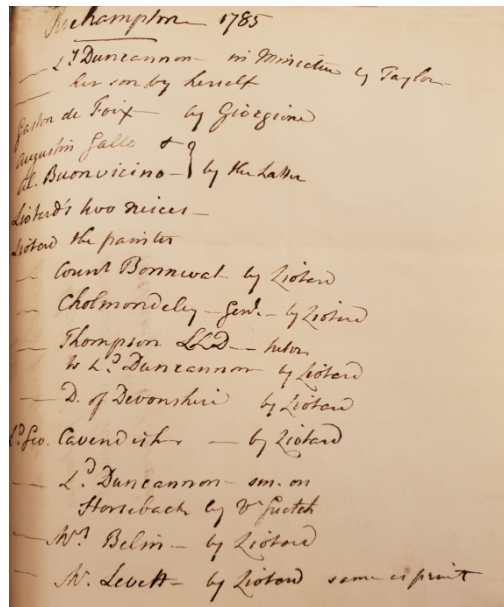 Roehampton 1785
— Ly Duncannon — in Miniature by Taylor
— her son by herself
Gaston de Foix — by Giorgione
Augustin Gallo &
Al. Buonvicino — } by the Latter
Liotard's two nieces —
Liotard the painter
— Count Bonneval — by Liotard
— Cholmondeley — Genl. — by Liotard
— Thompson LLD — tutor
to Ld. Duncannon by Liotard
— D. of Devonshire by Liotard
Ld. Geo. Cavendish — by Liotard
— Ld Duncannon — sm. on
Horseback by
— Mrs Belin — by Liotard
— Mr. Levett — by Liotard same as print